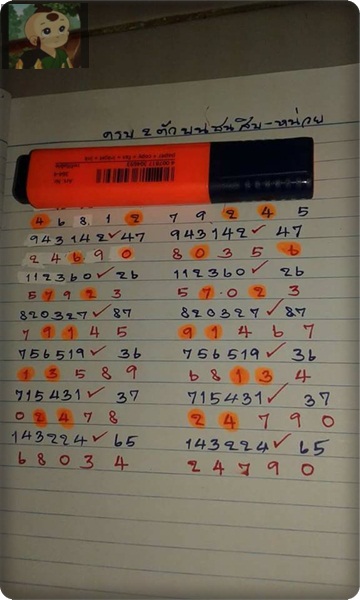 ตรบ 2 ตัว บน ชน สิบ - หน่วย
4 6 8 1 2 7 9 2 4 5
943142 ✓ 47 943142 ✓ 47
2 4 6 9 0 8 0 3 5 6
112360 ✓ 26 112360 ✓ 26
5 7 9 2 3 5 7 0 2 3
820327 ✓ 87 820327 ✓ 87
7 9 1 4 5 9 1 4 6 7
756519 ✓ 36 756519 ✓ 36
1 3 5 8 9 6 8 1 3 4
715431 ✓ 37 715431 ✓ 37
0 2 4 7 8 2 4 7 9 0
143224 ✓ 65 143224 ✓ 65
6 8 0 3 4 2 4 7 9 0